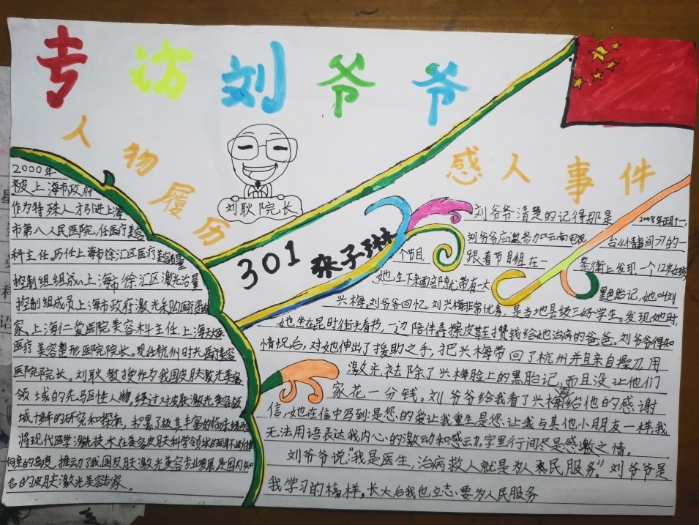 专访刘爷爷
人物履历
2000年
被上海市政府
作为特殊人才引进上海
市第八人民医院,任医疗美容
科主任,历任上海市徐汇区激光治量
控制组组长,上海市徐汇区激光治量
控制组成员,上海市政府激光采购
家,上海仁爱医院美容科主任,上海
医疗美容整形医院院长,现任杭州时光医疗美容
医院院长,刘耿教授作为我国皮肤激光美容
领域的先驱性人物,经过对皮肤激光美容
域精研的研究和探索,积累了极其丰富的临床
将现代医学激光技术在美容皮肤科学领域的
向新的高度,推动了我国皮肤激光美容专业发展,是国内知
名的皮肤激光美容专家。
刘耿院长
301 张子琳
感人事件
刘爷爷清楚的记得那是2008年
刘爷爷应邀参加云南电视台
个节目 跟着节目组在 街上发现一个12岁
她坐下来面部就带有大 黑胎记,她叫刘
兴梅,刘爷爷回忆,刘兴梅非常优秀,是当地县级三好学生,发现她时,
她坐在是时街头看书,一边陪伴弄擦皮鞋打攒钱给她治病的爸爸,刘爷爷得知
情况后,对她伸出了援助之手,把兴梅带回了杭州并且亲自操刀用
激光祛除了兴梅脸上的黑胎记,而且没让他们
家花一分钱,刘爷爷给我看了兴梅给他的感谢
信,她在信中写到是您的爱让我重生是您,让我与其他小朋友一样我
无法用语表达我内心的激动和感云力,字里行间尽是感激之情。
刘爷爷说:“我是医生,治病救人就是为人民服务。”刘爷爷是
我学习的榜样,长大后我也立志要为人民服务